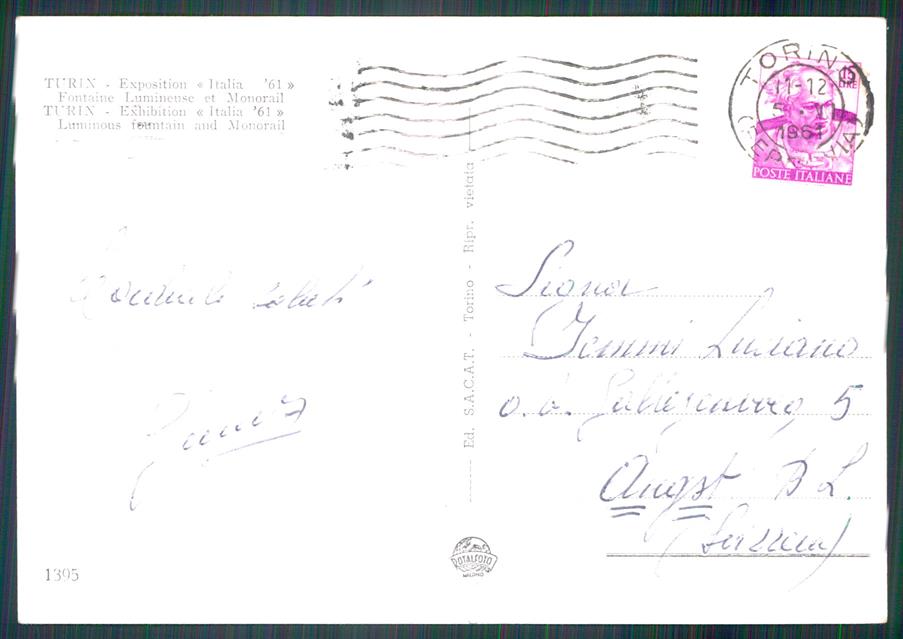 TURIN - Exposition « Italia '61 »
Fontaine Lumineuse et Monorail
TURIN - Exhibition « Italia '61 »
Luminous fountain and Monorail
TORINO
11-12
1961
FERROVIA
15
LIRE
POSTE ITALIANE
Ed. S.A.C.A.T. - Torino - Ripr. vietata
Cordiali saluti
Signor
Jemmi Luciano
5
Augst B L.
(Svizzera)
ROTALFOTO
MILANO
1395